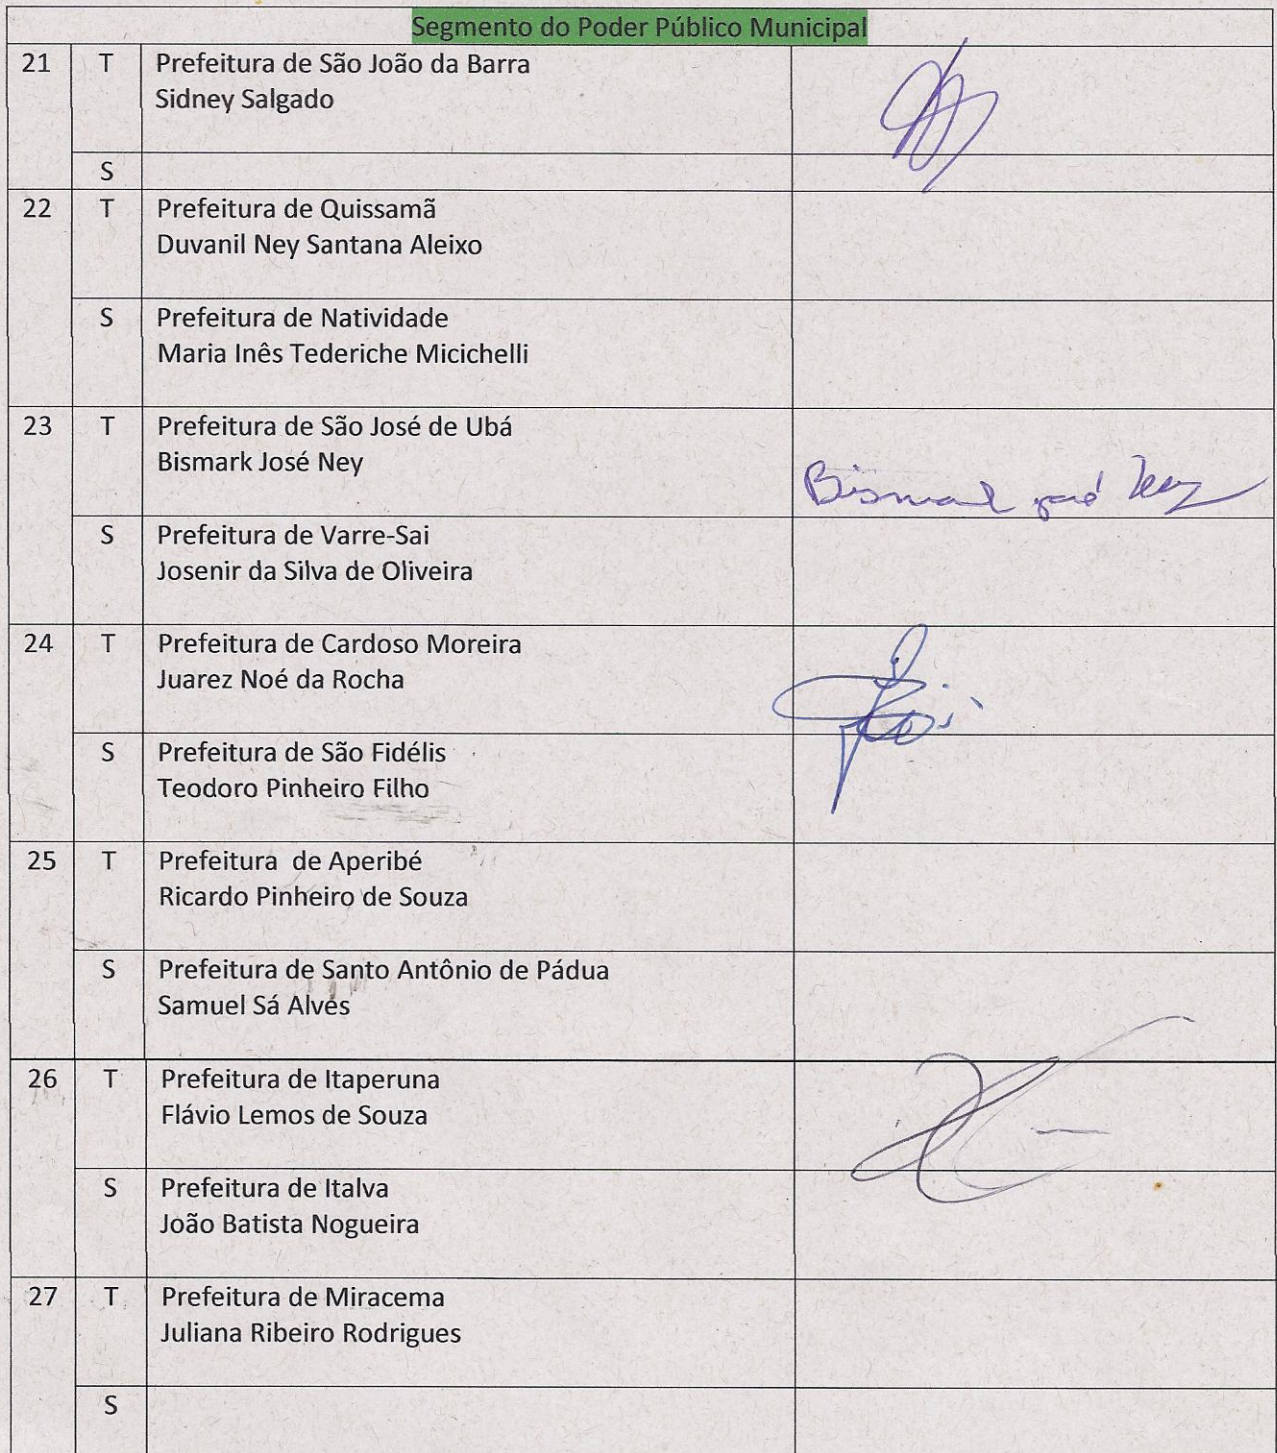 Segmento do Poder Público Municipal
21 T Prefeitura de São João da Barra
Sidney Salgado
S
22 T Prefeitura de Quissamã
Duvanil Ney Santana Aleixo
S Prefeitura de Natividade
Maria Inês Tederiche Micichelli
23 T Prefeitura de São José de Ubá
Bismark José Ney
Bismark José Ney
S Prefeitura de Varre-Sai
Josenir da Silva de Oliveira
24 T Prefeitura de Cardoso Moreira
Juarez Noé da Rocha
S Prefeitura de São Fidélis
Teodoro Pinheiro Filho
25 T Prefeitura de Aperibé
Ricardo Pinheiro de Souza
S Prefeitura de Santo Antônio de Pádua
Samuel Sá Alves
26 T Prefeitura de Itaperuna
Flávio Lemos de Souza
S Prefeitura de Italva
João Batista Nogueira
27 T Prefeitura de Miracema
Juliana Ribeiro Rodrigues
S